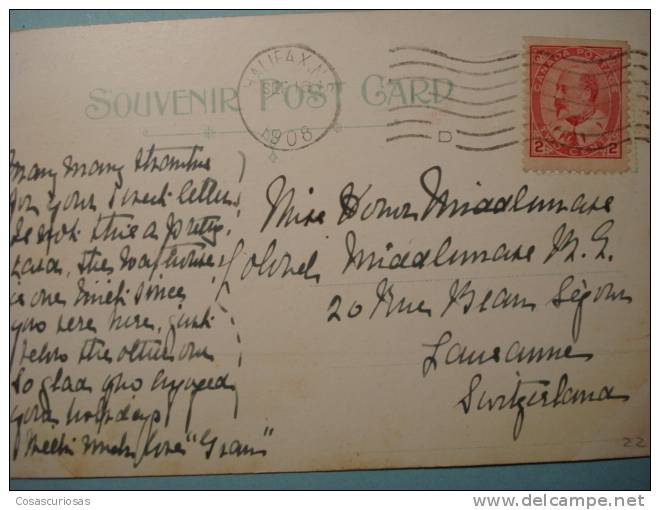 HALIFAX, N.S.
SEP
1908
D
CANADA POSTAGE
2 TWO CENTS 2
SOUVENIR POST CARD
Many Many thanks
for your sweet letter
is not this a pretty
card, the
is one since
you were here, just
below the other one
So glad you enjoyed
your holidays
With much love "Gran"
Miss Honor Middlemass
Colonel Middlemass R.E.
20 Rue Beau Séjour
Lausanne
Switzerland
22
Cosascuriosas
delcampe.net